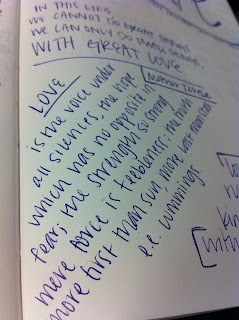 IN THIS LIFE
WE CANNOT DO GREAT THINGS
WE CAN ONLY DO SMALL THINGS,
WITH GREAT LOVE.
MOTHER TERESA
LOVE
is the voice under
all silences, the hope
which has no opposite in
fear; the strength so strong
mere force is feebleness: the truth
more first than sun, more last than star
e.e. cummings